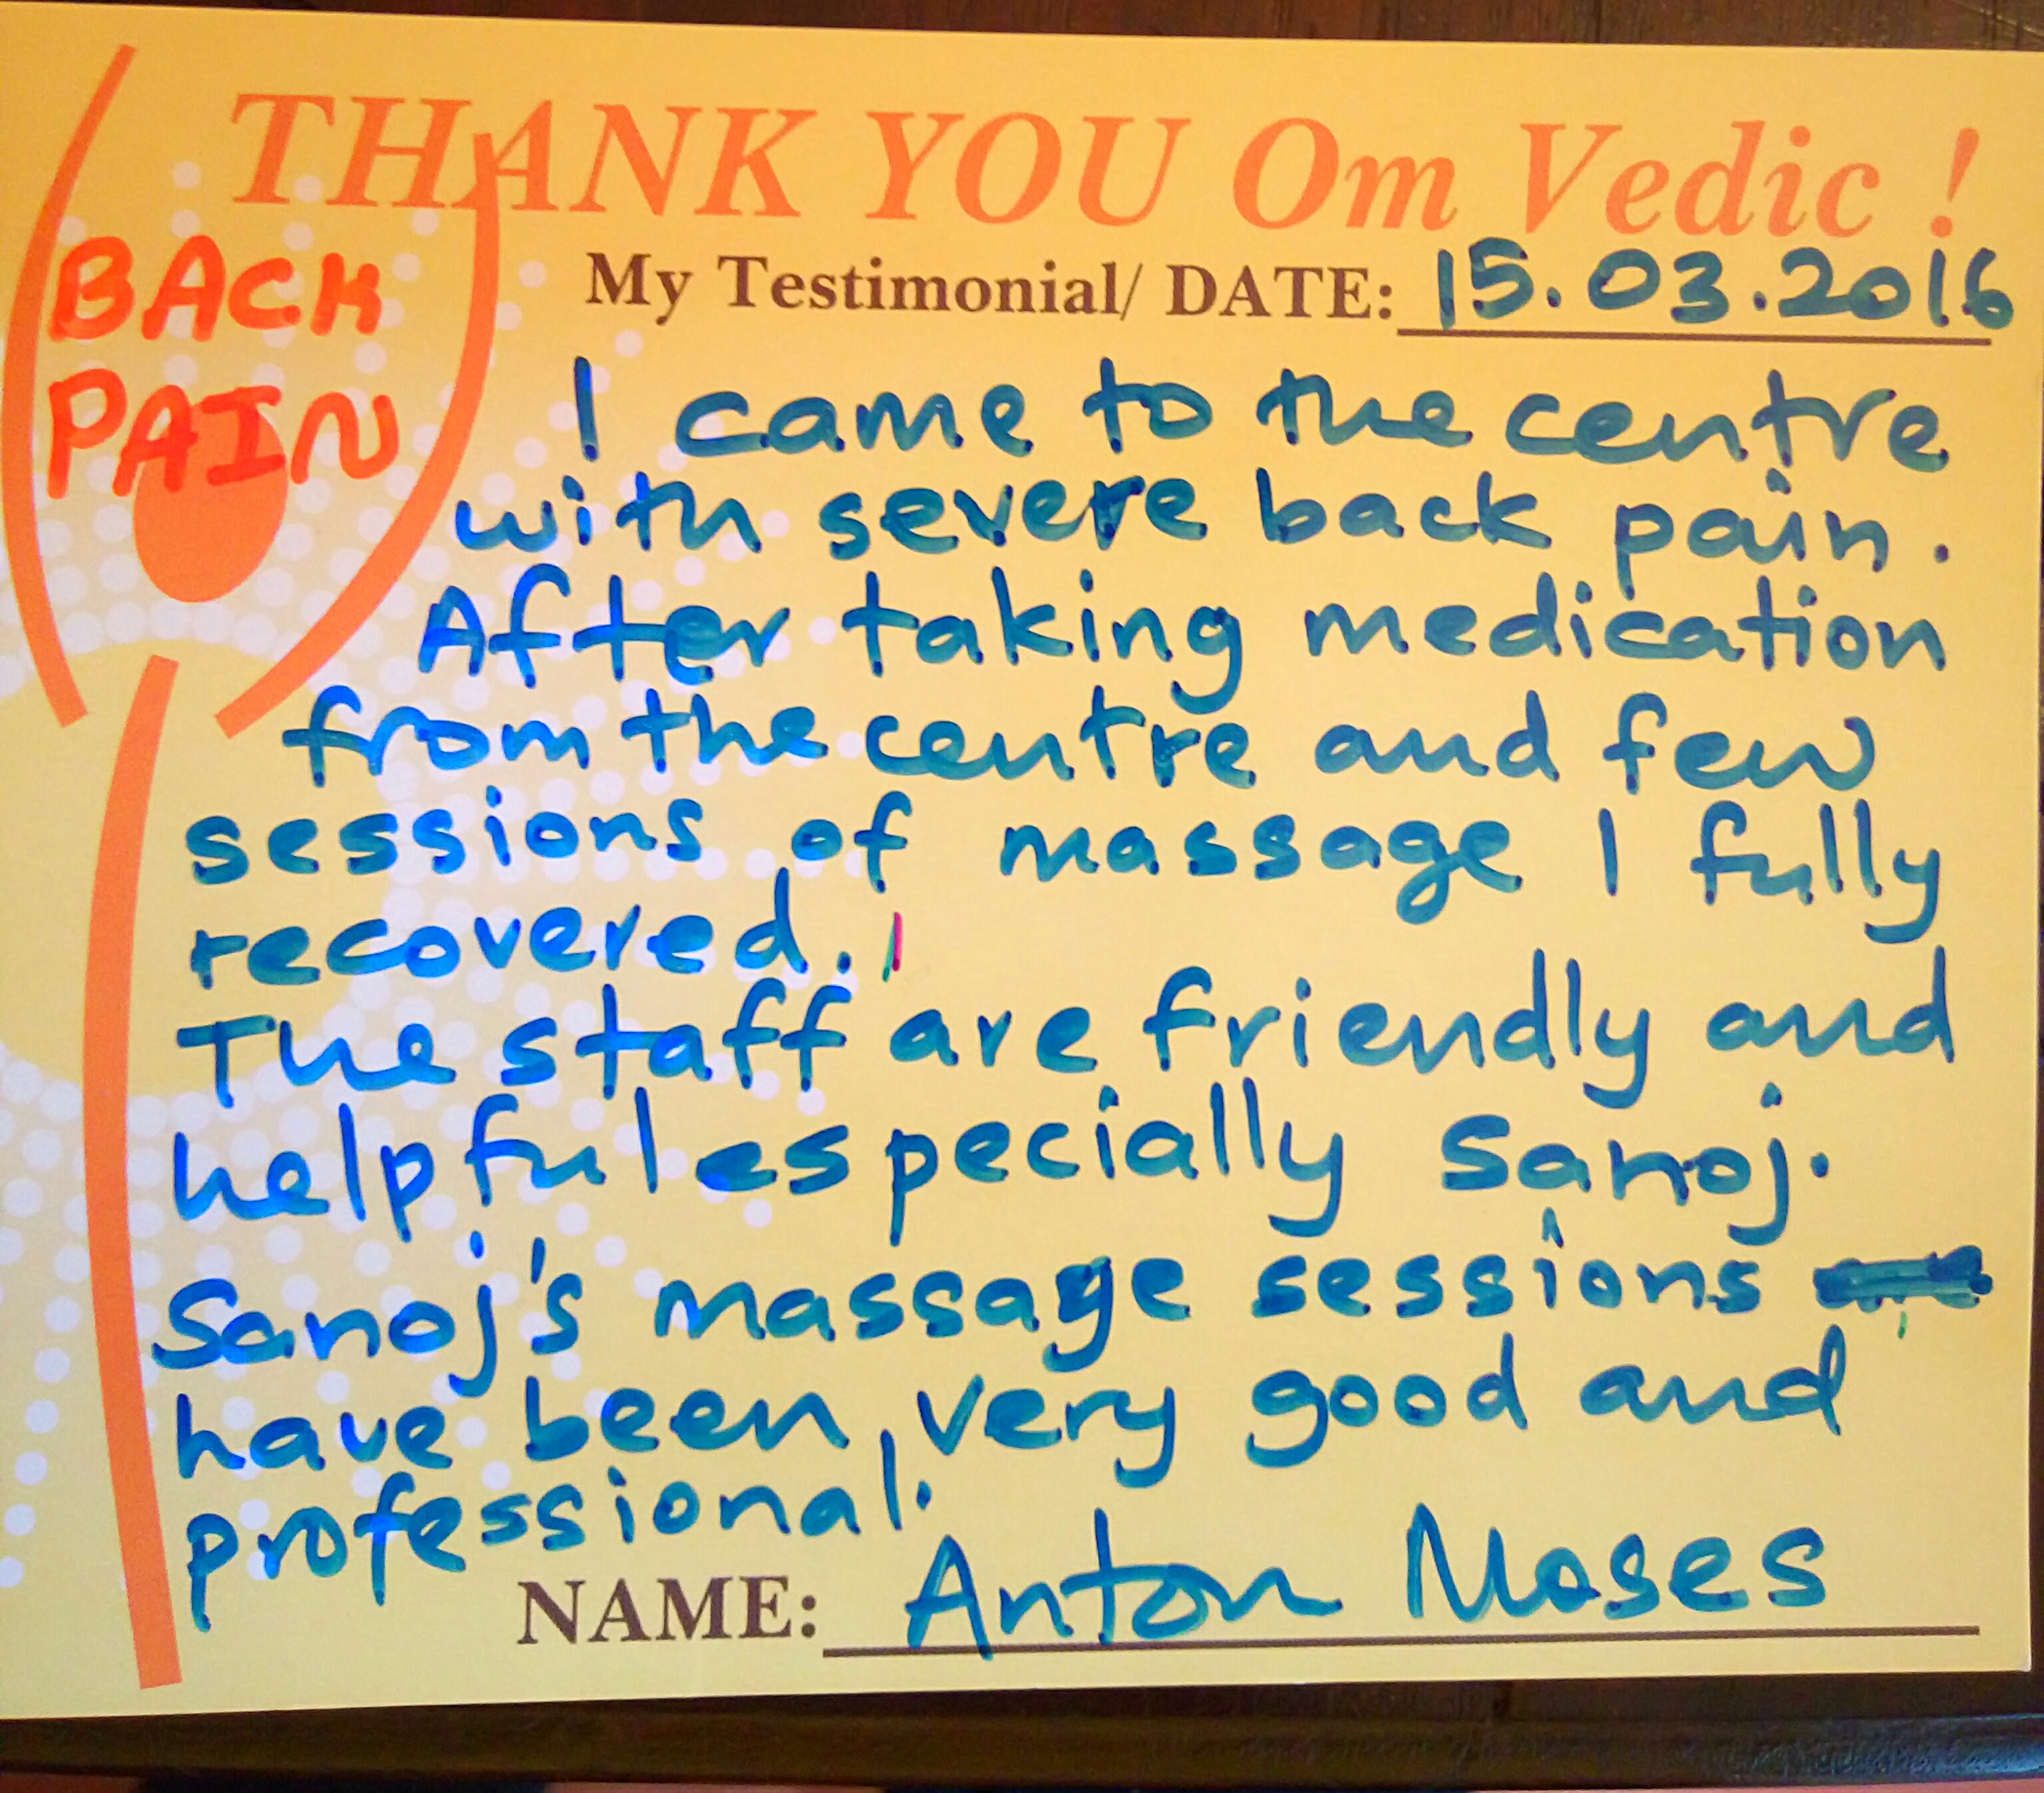 THANK YOU Om Vedic !
BACK
PAIN
My Testimonial/ DATE: 15.03.2016
I came to the centre
with severe back pain.
After taking medication
from the centre and few
sessions of massage I fully
recovered.
The staff are friendly and
helpful especially Sanoj.
Sanoj's massage sessions
have been very good and
professional.
NAME: Anton Moses